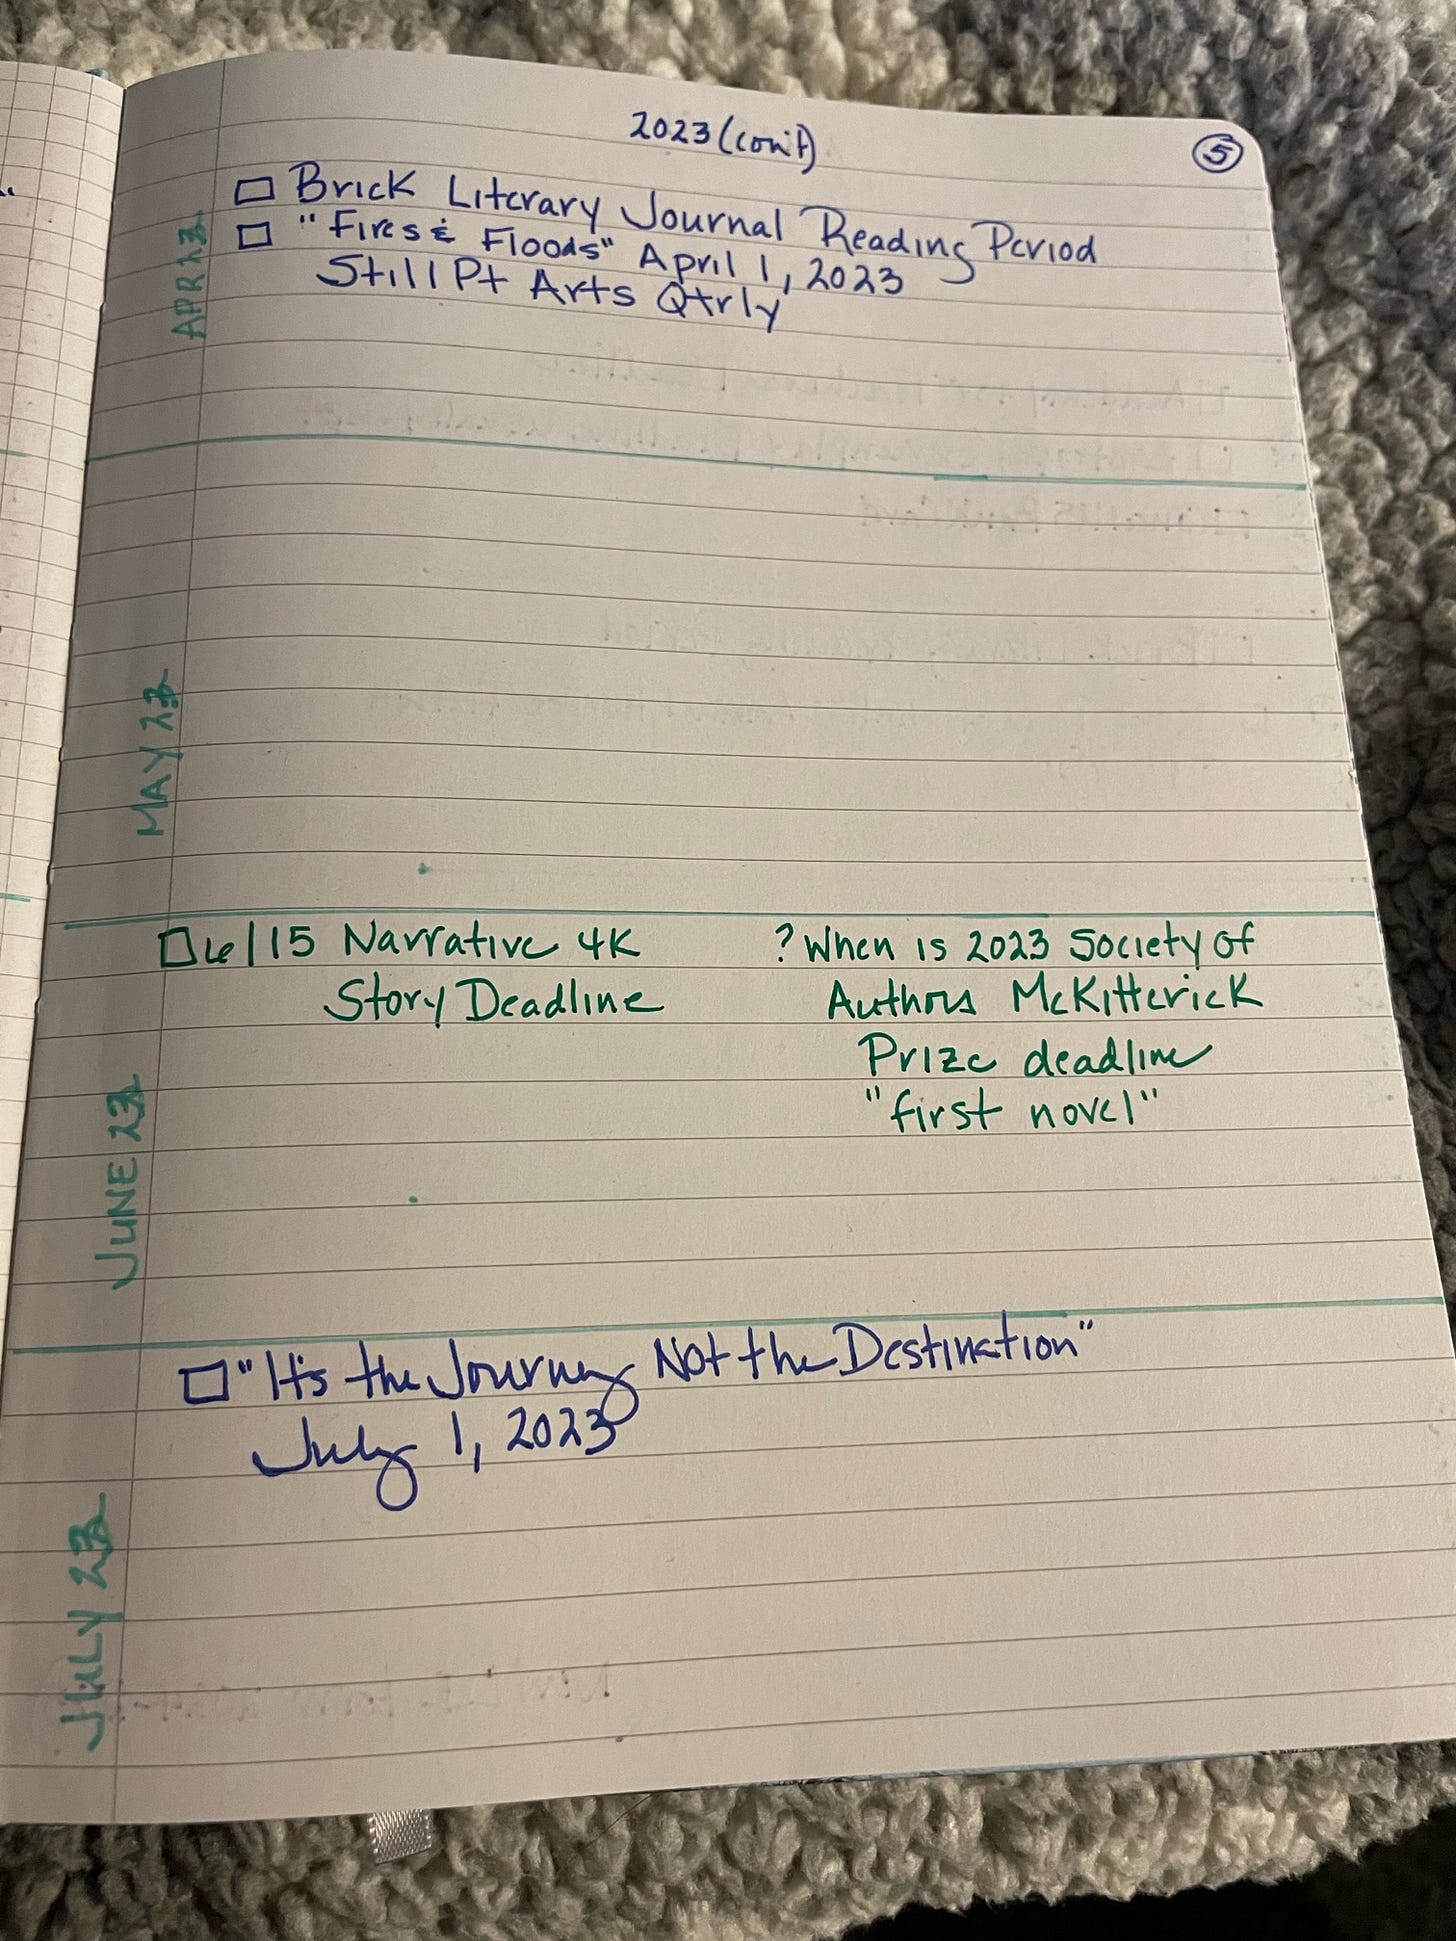 2023 (con't)
5
APR 23
□ Brick Literary Journal Reading Period
□ "Fires & Floods" April 1, 2023
Still Pt Arts Qtrly
MAY 23
JUNE 23
□ 6/15 Narrative 4K
Story Deadline
? When is 2023 Society of
Authors McKitterick
Prize deadline
"first novel"
JULY 23
□ "It's the Journey Not the Destination"
July 1, 2023